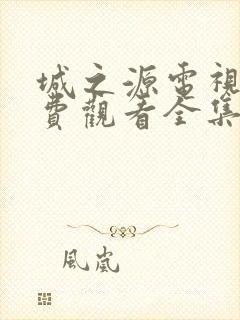 城之源電視
費觀看全集
風嵐